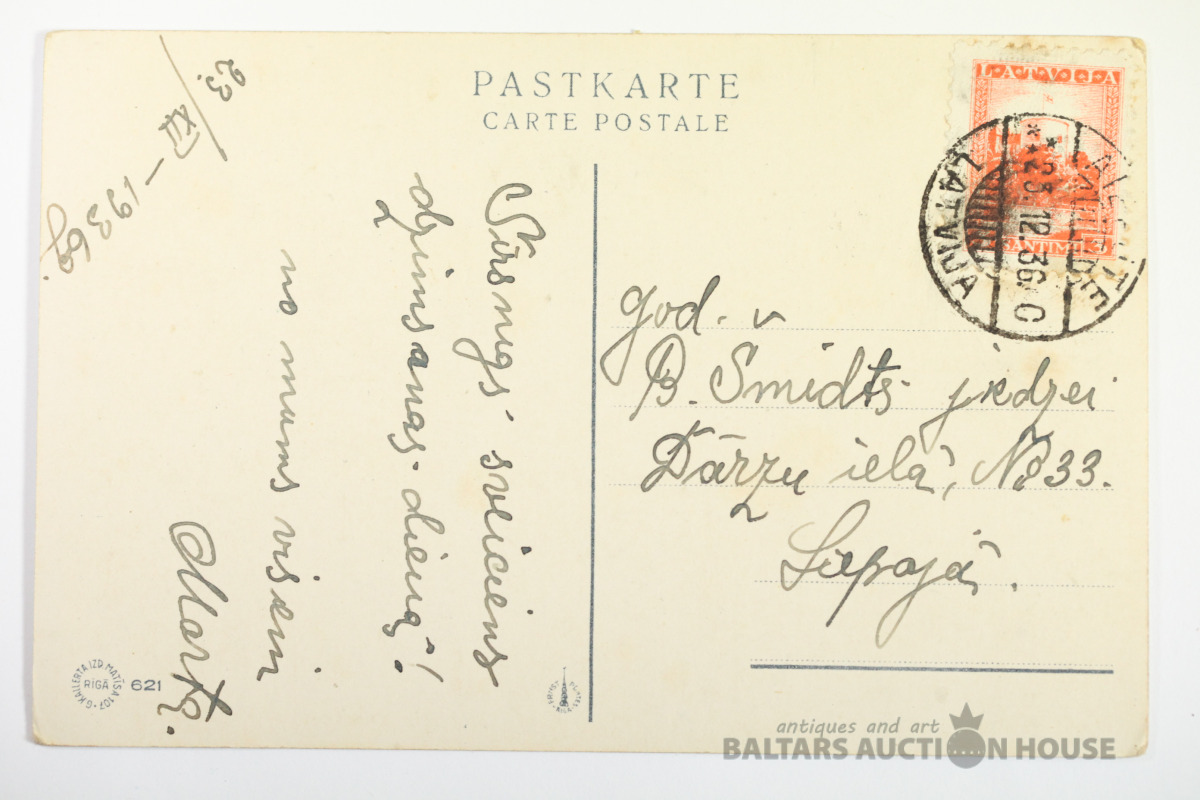 PASTKARTE
CARTE POSTALE
LATVIJA
SANTIMI
LATVIJA
23.12.36
C
23. XII – 1936g.
Sirsnigs sveiciens
dzimšanas-dienā!
no mums visiem
Marta.
God.
B. Šmidts jkdzei
Dārzu ielā, № 33.
Liepajā.
G.KALLERTA IZD. MATĪSA 107
RĪGĀ
621
antiques and art
BALTARS AUCTION HOUSE